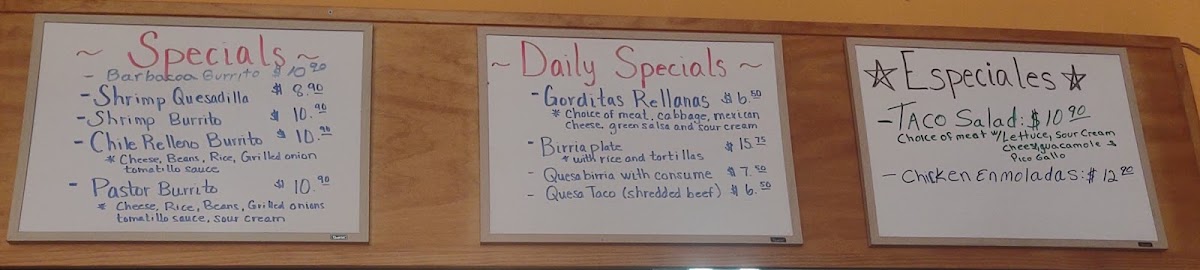 ~ Specials ~
- Barbacoa Burrito $10.90
- Shrimp Quesadilla $8.90
- Shrimp Burrito $10.90
- Chile Relleno Burrito $10.90
* Cheese, Beans, Rice, Grilled onion
tomatillo sauce
- Pastor Burrito $10.90
* Cheese, Rice, Beans, Grilled onions
tomatillo sauce, sour cream
~ Daily Specials ~
- Gorditas Rellanas $6.50
* Choice of meat, cabbage, mexican
cheese, green salsa and sour cream
- Birria plate $15.75
* with rice and tortillas
- Quesabirria with consume $7.50
- Quesa Taco (shredded beef) $6.50
☆ Especiales ☆
- TACO Salad: $10.90
Choice of meat w/ Lettuce, Sour Cream
Cheese, guacamole &
Pico Gallo
- Chicken Enmoladas: $12.90